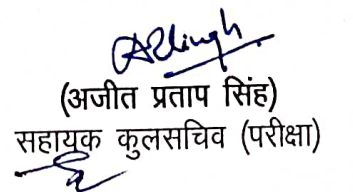 (अजीत प्रताप सिंह)
सहायक कुलसचिव (परीक्षा)